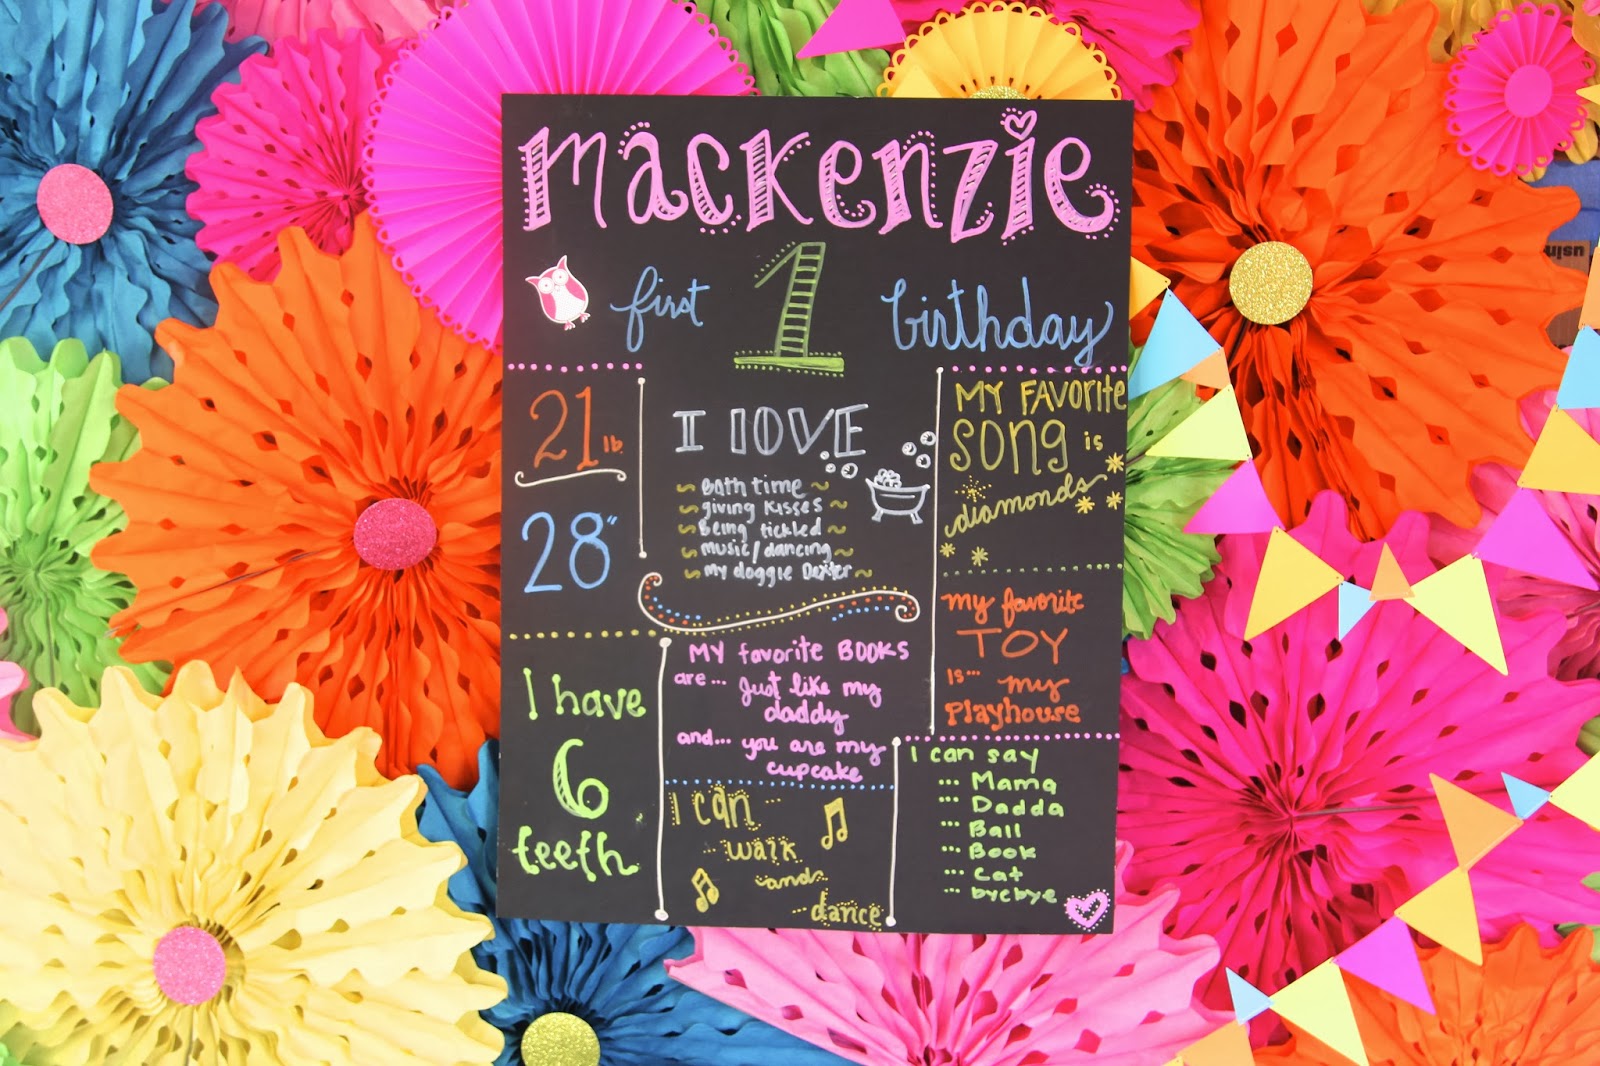 Mackenzie
first 1 birthday
21 lb.
28"
I LOVE
Bath time
giving kisses
Being tickled
music/dancing
my doggie Dexter
MY FAVORITE
SONG is
diamonds
my favorite
TOY
is... my
Playhouse
I have
6
teeth
MY favorite BOOKS
are... Just like my
daddy
and... you are my
cupcake
I can
walk
and
dance
I can say
... Mama
... Dadda
... Ball
... Book
... Cat
... byebye